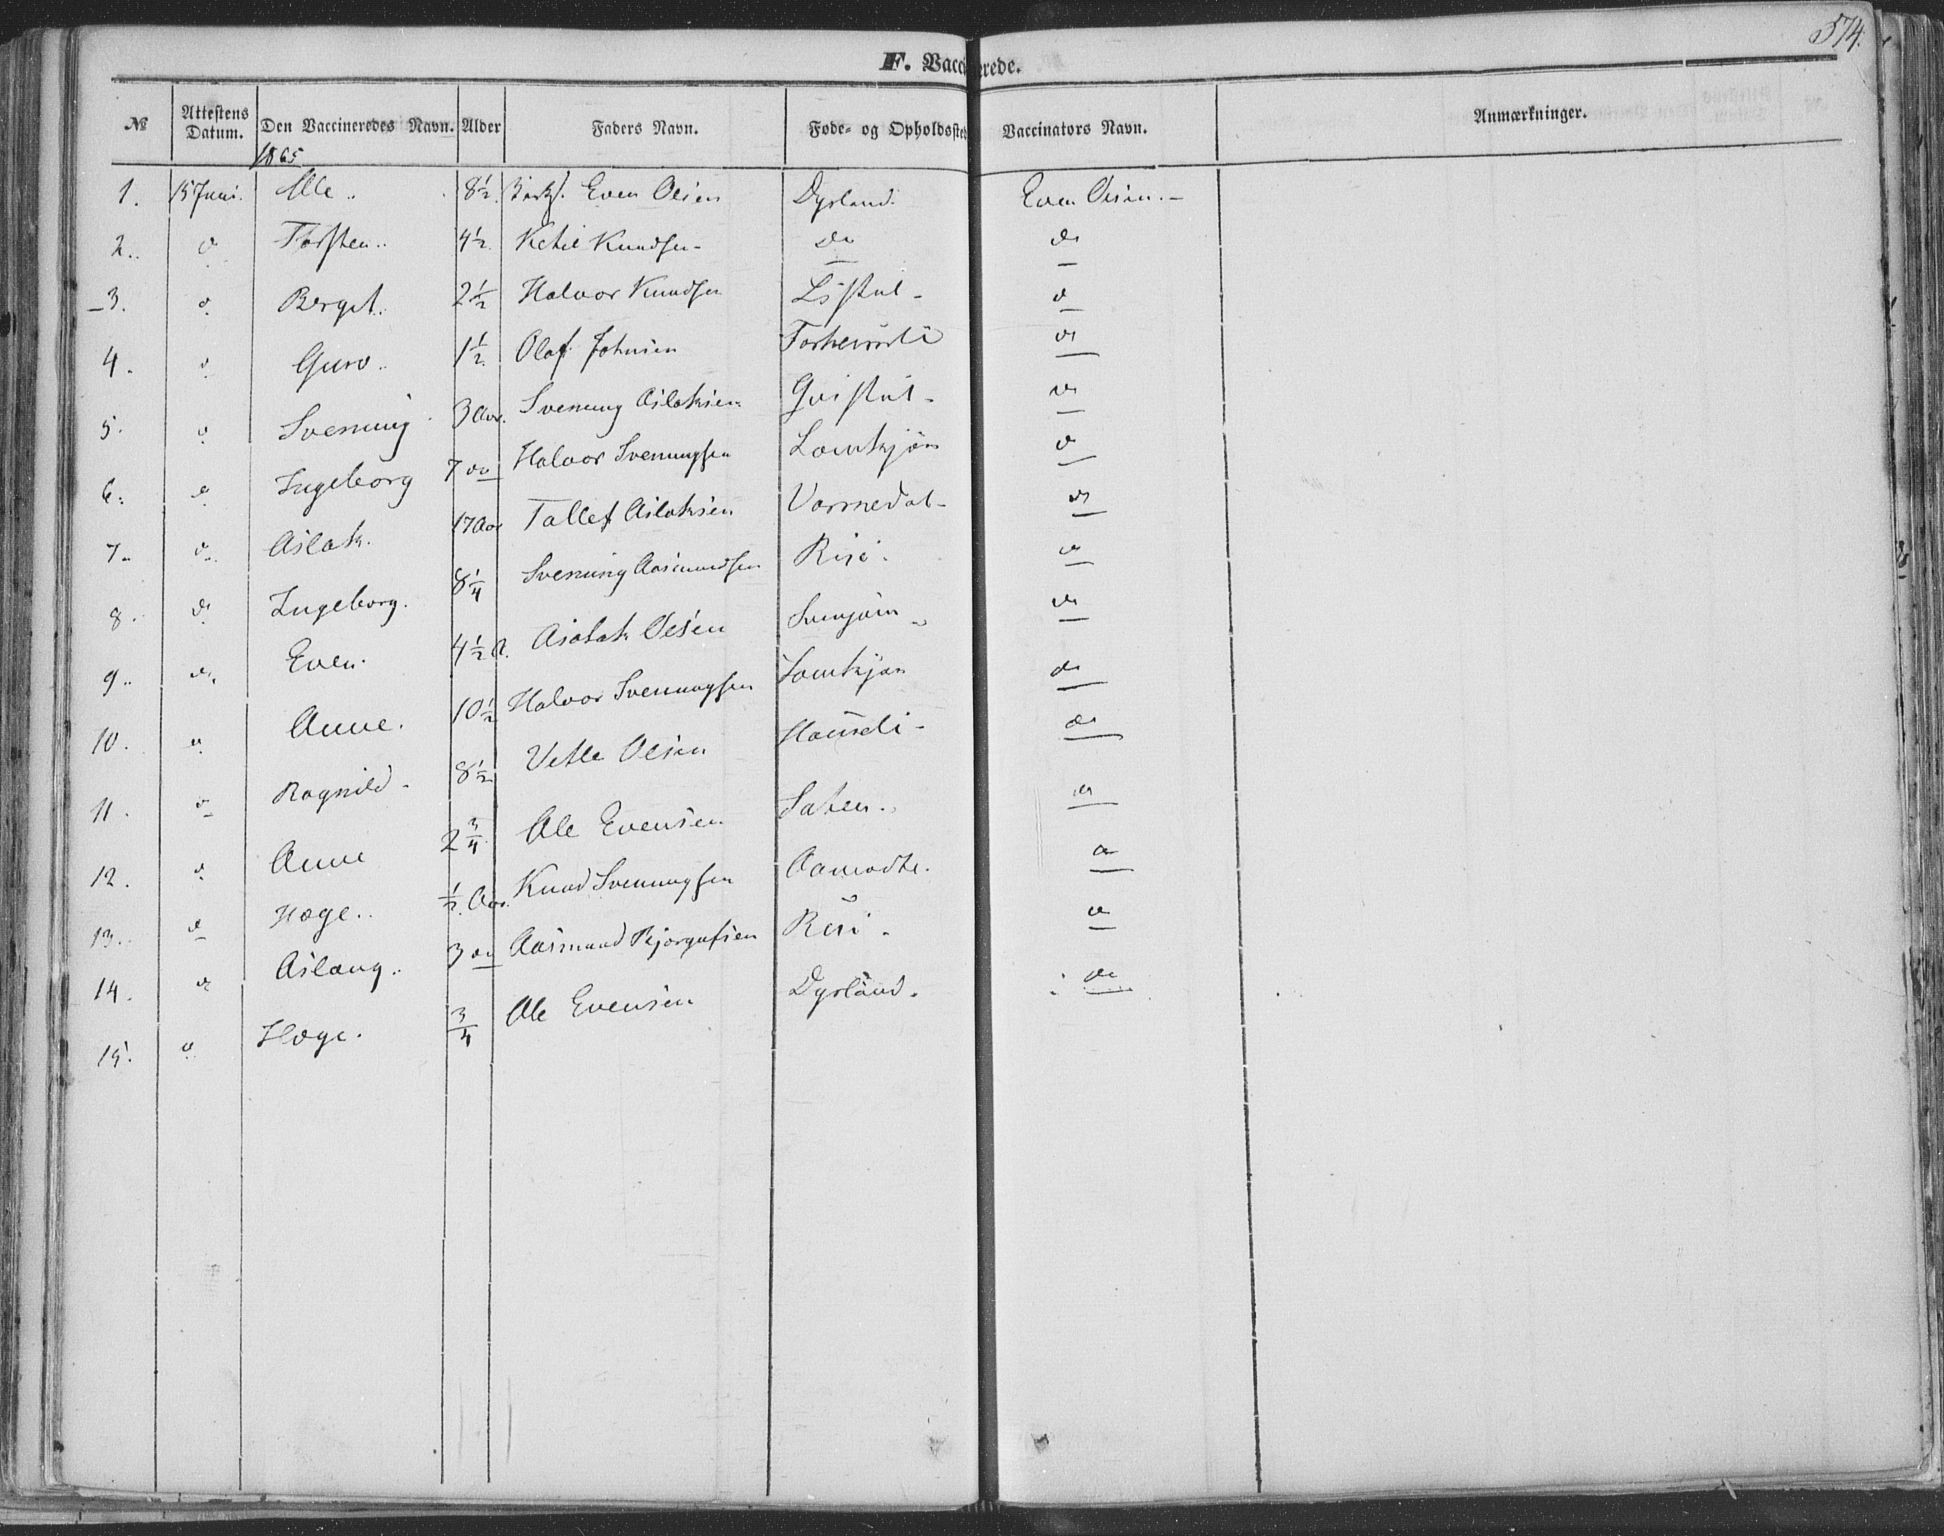 574.
F. Vaccinerede.
№ Attestens Datum. Den Vaccineredes Navn. Alder Faders Navn. Føde- og Opholdssted Vaccinators Navn. Anmærkninger.
1865
1. 15 Juni. Ole.. 8 1/2. Even Olsen Dyrland. Even Olsen. -
2.. do Torsten.. 4 1/2. Ketil Knudsen- do do
3. do Berget.. 2 1/2 Halvor Knudsen do
4. do Guro.. 1 1/2. Olaf Johnsen do
5. do Svenning 3 Aar. Svenung Aslaksen Gvistul- do
6. do Ingeborg 7 do Halvor Svenungsen Lomtkjøn do
7.. do Aslak. 17 Aar Tallef Aslaksen Varmedal- do
8. do Ingeborg. 8 1/4 Svenung Aasmundsen Risi. do
9.. do Even. 4 1/2 A. Aslak Olsen do
10. do Anne. 10 1/2 Halvor Svenungsen Lomtkjøn do
11. do Ragnild- 8 1/2 Vetle Olsen do
12. do Anne 2 3/4 Ole Evensen do
13.. do Hæge.. 1/2. Aar. Knud Svenungsen Aamodt. do
14. do Aslaug.. 3 do Aasmund Bjørgufsen Risi. do
15. do Hæge. 3/4 Ole Evensen Dyrland. do